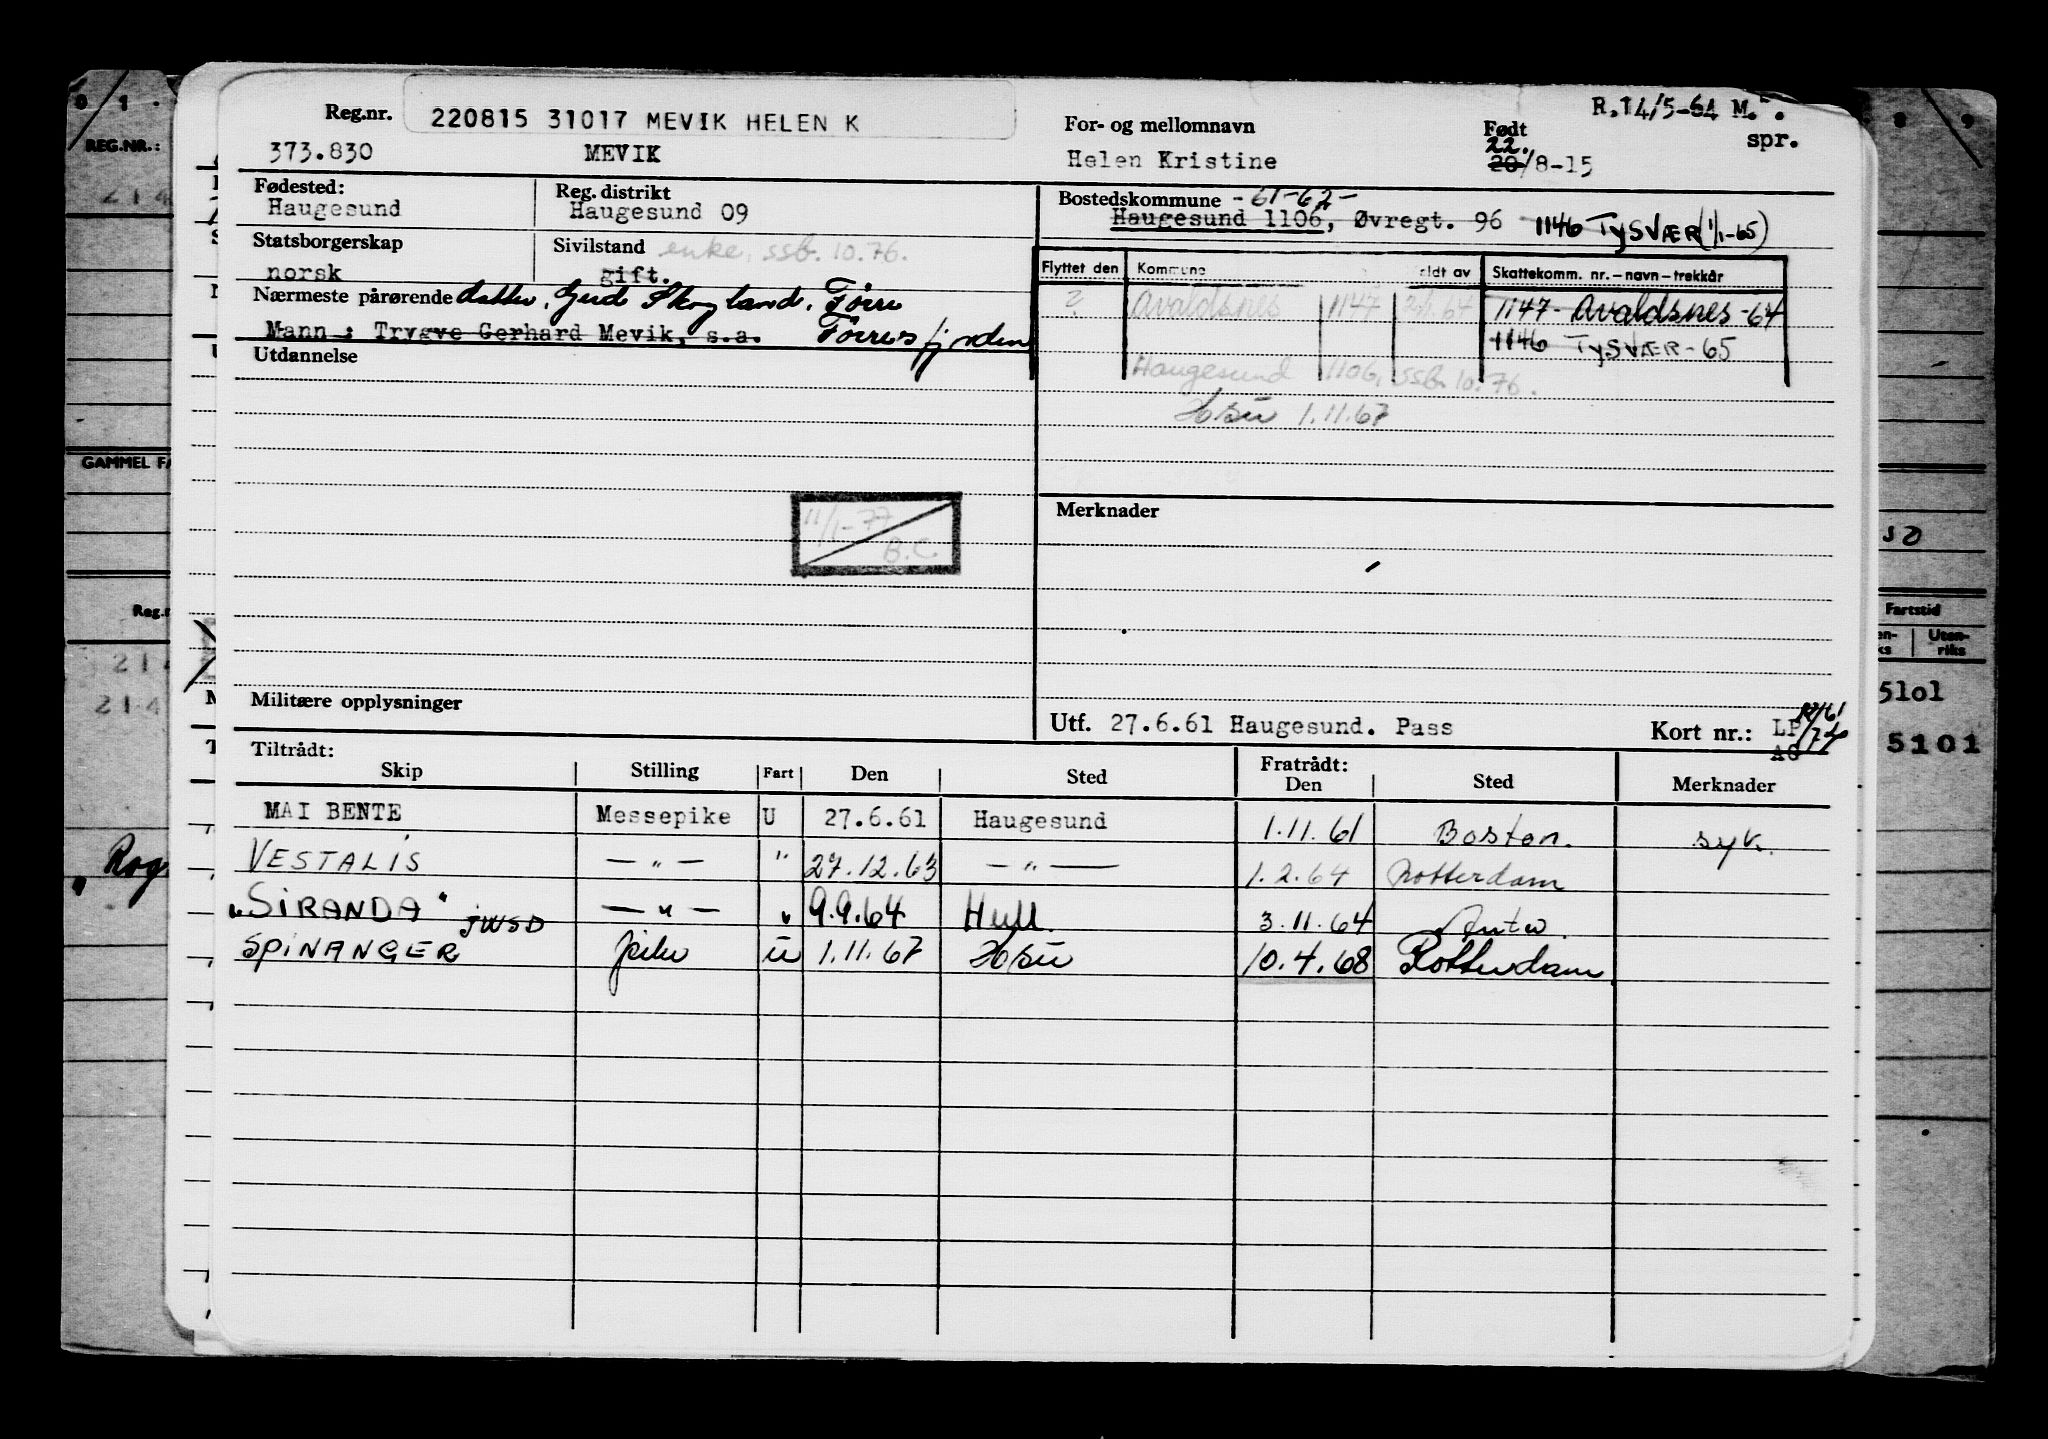 R.14/5-64 M.
spr.
Reg.nr. 220815 31017 MEVIK HELEN K
373.830 MEVIK
For- og mellomnavn
Helen Kristine
Født
22.
20/8-15
Fødested:
Haugesund
Reg. distrikt
Haugesund 09
Bostedskommune -61-62-
Haugesund 1106, Øvregt. 96 1146 TYSVÆR (1/1-65)
Statsborgerskap
norsk
Sivilstand enke, ssb. 10.76.
gift.
Nærmeste pårørende datter, Gerd Skogland, Førre
Mann : Trygve Gerhard Mevik, s.a. Førresfjorden
Flyttet den Kommune ldt av Skattekomm. nr.-navn-trekkår
? Avaldsnes 1147 64 1147- Avaldsnes-64
1146 TYSVÆR-65
Haugesund 1106, ssb. 10.76.
1.11.67
Utdannelse
11/1-77
B.C.
Merknader
Militære opplysninger
Utf. 27.6.61 Haugesund. Pass
Kort nr.: LP
AG
Tiltrådt:
Skip Stilling Fart Den Sted
Fratrådt:
Den Sted Merknader
MAI BENTE Messepike U 27.6.61 Haugesund 1.11.61 Boston. syk.
VESTALIS — " — " 27.12.63 — " — 1.2.64 Rotterdam
"SIRANDA" JWSD — " — " 9.9.64 Hull. 3.11.64 Antw.
SPINANGER pike u 1.11.67 10.4.68 Rotterdam
REG.NR.:
GAMMEL FA
Reg.n
Rog
Fartstid
Uten-
riks
5lol
5101